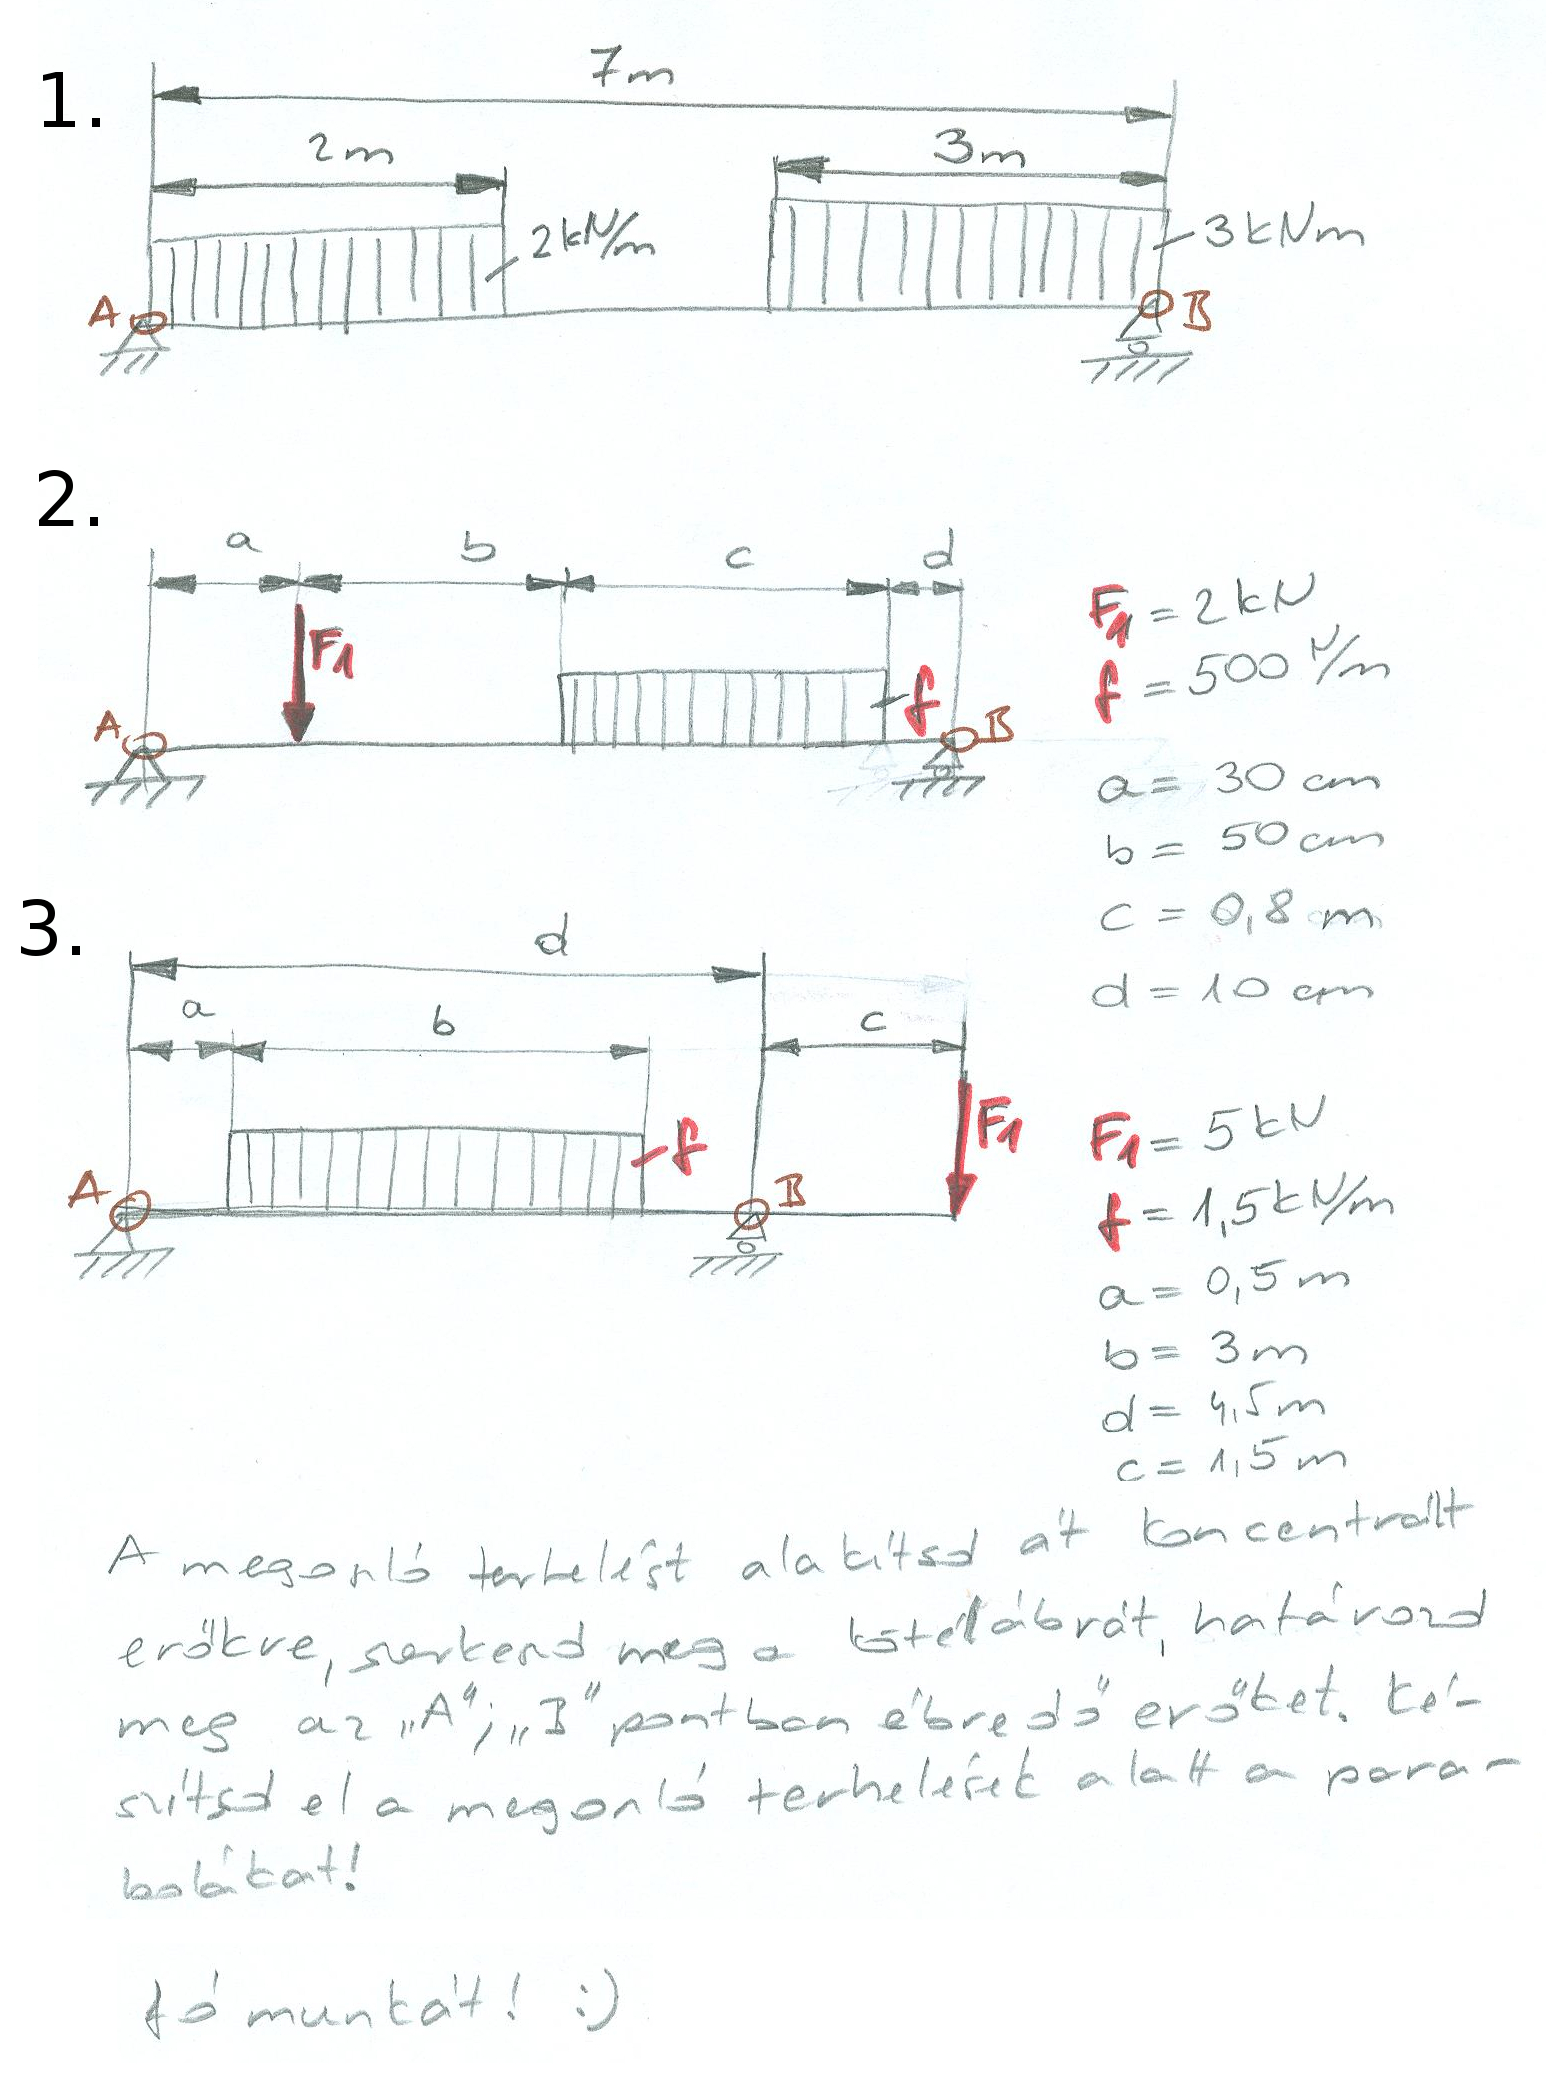 1.
7m
2m
3m
2kN/m
3kNm
A
B
2.
a
b
c
d
F1
f
A
B
F1 = 2kN
f = 500 N/m
a = 30 cm
b = 50 cm
c = 0,8 m
d = 10 cm
3.
d
a
b
c
f
F1
A
B
F1 = 5kN
f = 1,5kN/m
a = 0,5m
b = 3m
d = 4,5m
c = 1,5m
A megoszló terhelést alakítsd át koncentrált
erőkre, szerkeszd meg a kötélábrát, határozd
meg az „A"; „B" pontban ébredő erőket. Ké-
szítsd el a megoszló terhelések alatt a para-
bolákat!
Jó munkát! :)